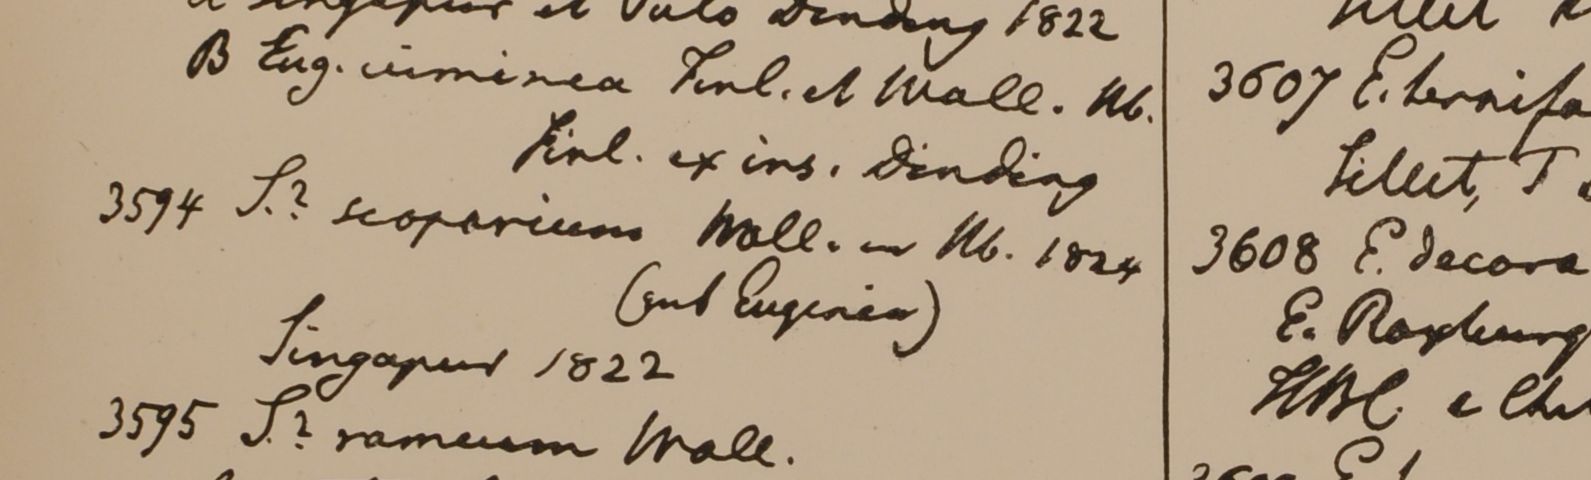 Singapur et Pulo Dinding 1822
B Eug. viminea Finl. et Wall. Hb.
Finl. ex ins. Dinding
3594 S.? scoparium Wall. in Hb. 1824
(sub Eugenia)
Singapur 1822
3595 S.? rameum Wall.
Sillet
3607 E. ternifo
Sillet, T
3608 E. decora
E. Roxburg
HBC. e